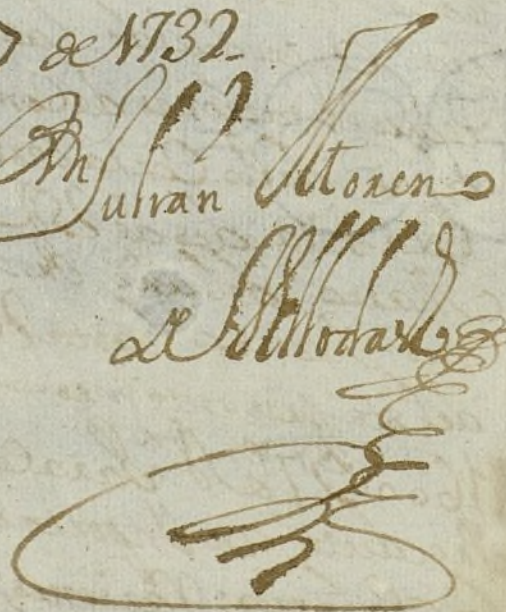 de 1732
Dn Julian Moreno
de Villodas